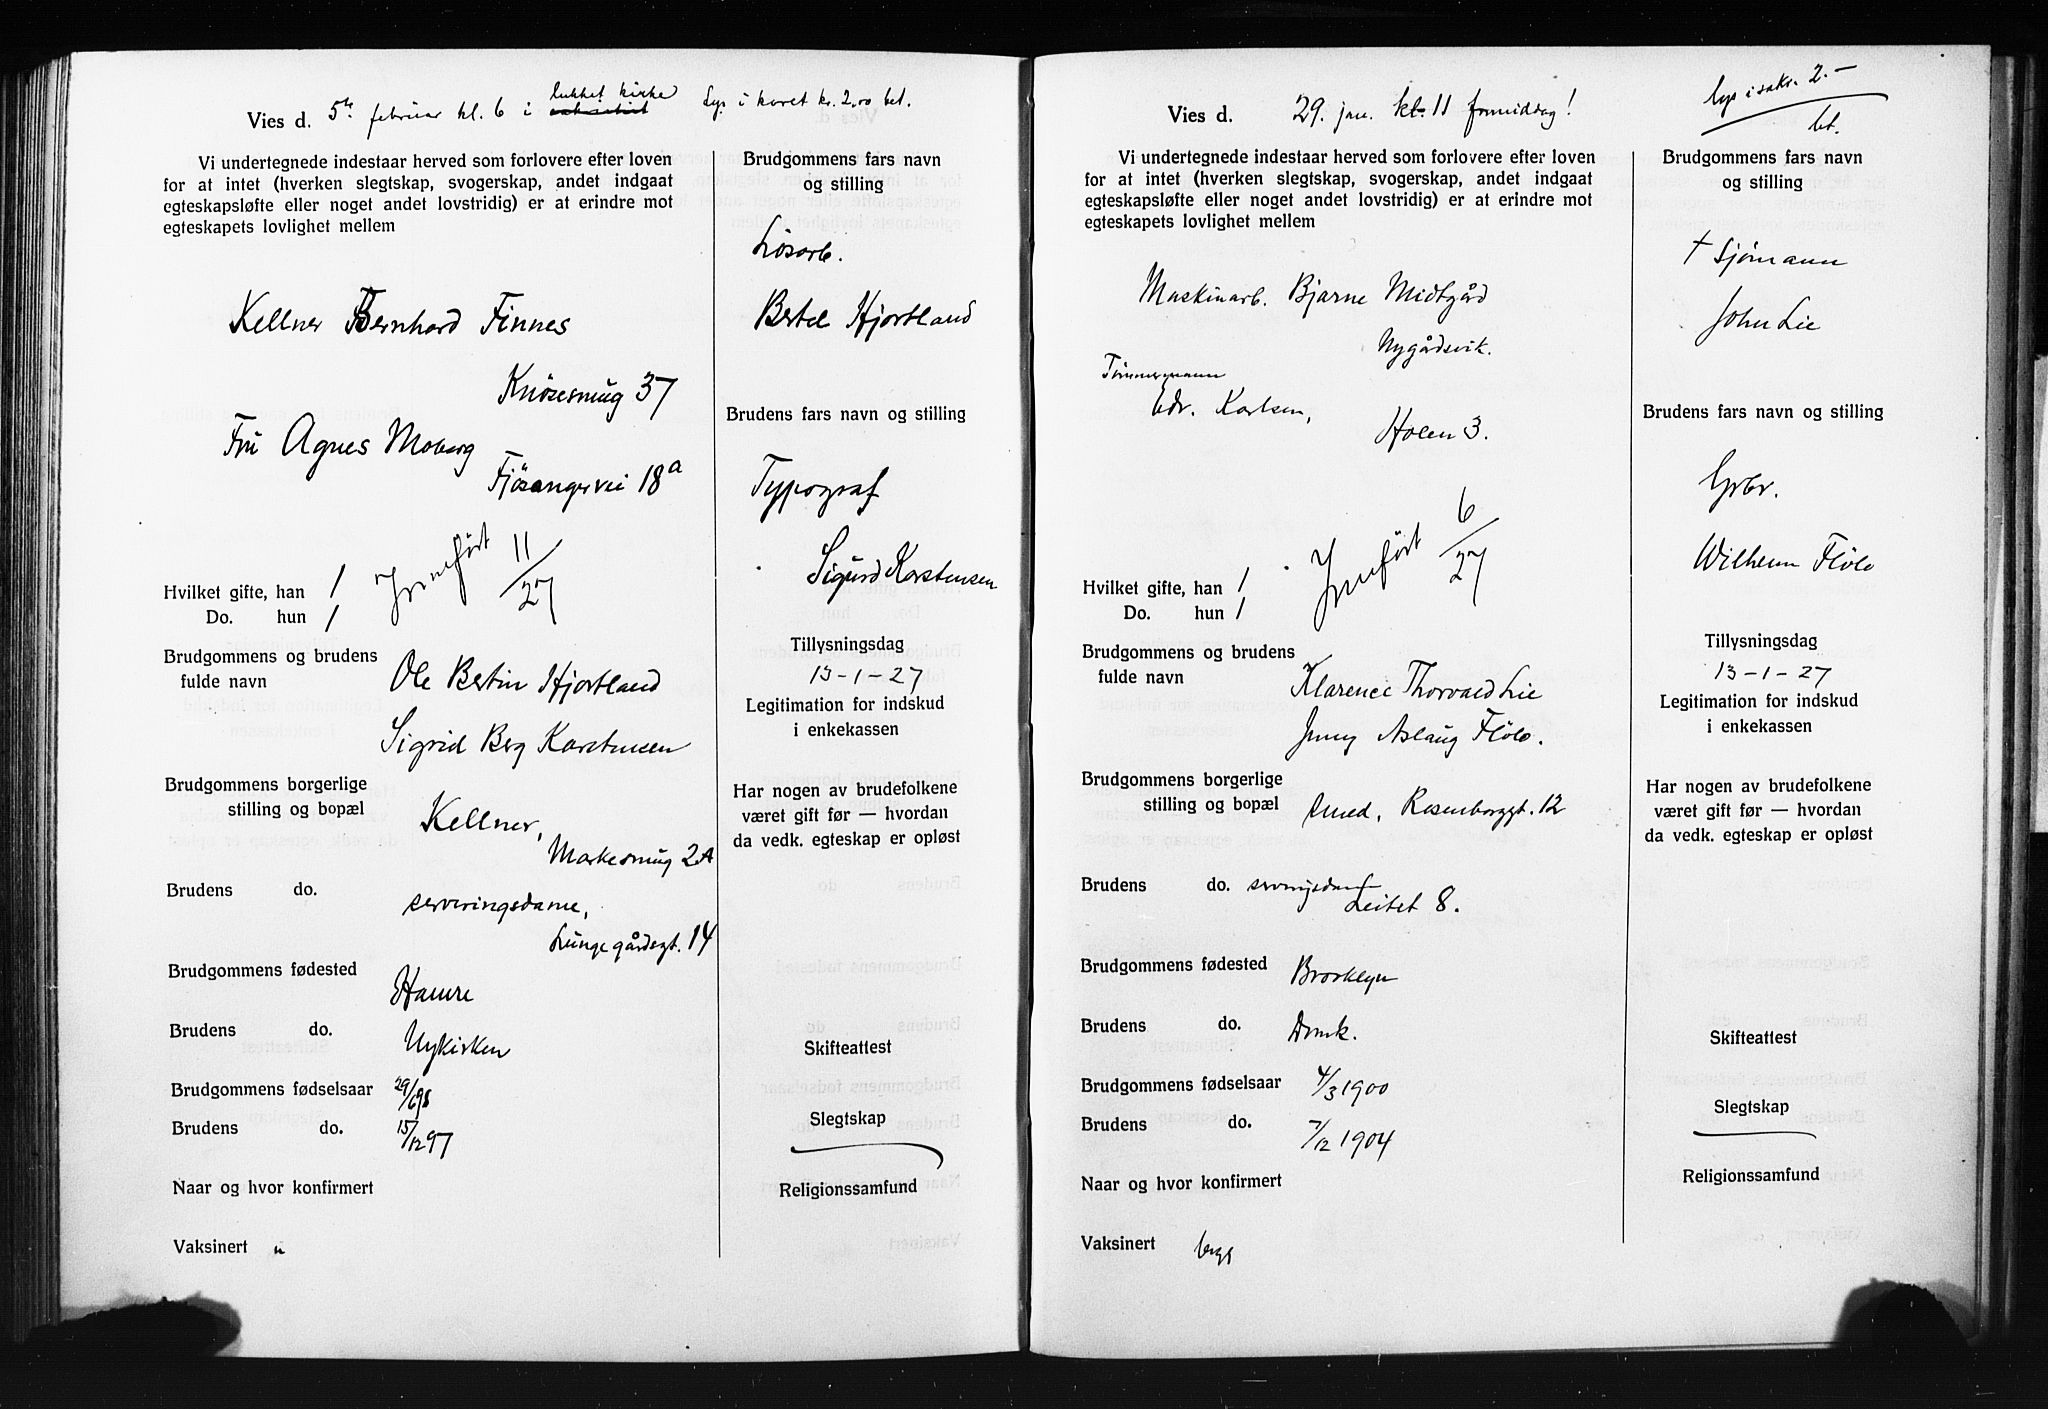 Vies d. 5te februar kl. 6 i lukket kirke Lys i koret kr. 2,00 bet.
Vi undertegnede indestaar herved som forlovere efter loven
for at intet (hverken slegtskap, svogerskap, andet indgaat
egteskapsløfte eller noget andet lovstridig) er at erindre mot
egteskapets lovlighet mellem
Kellner Bernhard Finnes
Knösesmug 37
Fru Agnes Moberg
Fjösangervei 18a
Innført 11/27
Hvilket gifte, han 1
Do. hun 1
Brudgommens og brudens
fulde navn
Ole Bertin Hjortland
Sigrid Berg Karstensen
Brudgommens borgerlige
stilling og bopæl
Kellner,
Markesmug 2A
Brudens do.
serveringsdame,
Lungegårdsgt. 14
Brudgommens fødested Hamre
Brudens do. Nykirken
Brudgommens fødselsaar 29/6 98
Brudens do. 15/12 97
Naar og hvor konfirmert
Vaksinert
Brudgommens fars navn
og stilling
Løsarb.
Bertel Hjortland
Brudens fars navn og stilling
Typograf
Sigurd Karstensen
Tillysningsdag
13-1-27
Legitimation for indskud
i enkekassen
Har nogen av brudefolkene
været gift før — hvordan
da vedk. egteskap er opløst
Skifteattest
Slegtskap
Religionssamfund
Vies d. 29. jan. kl. 11 formiddag!
Lys i sakr. 2.—
bet.
Vi undertegnede indestaar herved som forlovere efter loven
for at intet (hverken slegtskap, svogerskap, andet indgaat
egteskapsløfte eller noget andet lovstridig) er at erindre mot
egteskapets lovlighet mellem
Maskinarb. Bjarne Midtgård
Nygårdsvik.
Tömmermann
Edv. Karlsen,
Holen 3.
Innført 6/27
Hvilket gifte, han 1
Do. hun 1
Brudgommens og brudens
fulde navn
Klarence Thorvald Lie
Jenny Aslaug Flölo.
Brudgommens borgerlige
stilling og bopæl
smed, Rosenborggt. 12
Brudens do. serveringsdame
Leitet 8.
Brudgommens fødested Brooklyn
Brudens do. Domk.
Brudgommens fødselsaar 4/3 1900
Brudens do. 7/12 1904
Naar og hvor konfirmert
Vaksinert begg
Brudgommens fars navn
og stilling
† Sjømann
John Lie
Brudens fars navn og stilling
Grbr.
Wilhelm Flölo
Tillysningsdag
13-1-27
Legitimation for indskud
i enkekassen
Har nogen av brudefolkene
været gift før — hvordan
da vedk. egteskap er opløst
Skifteattest
Slegtskap
Religionssamfund